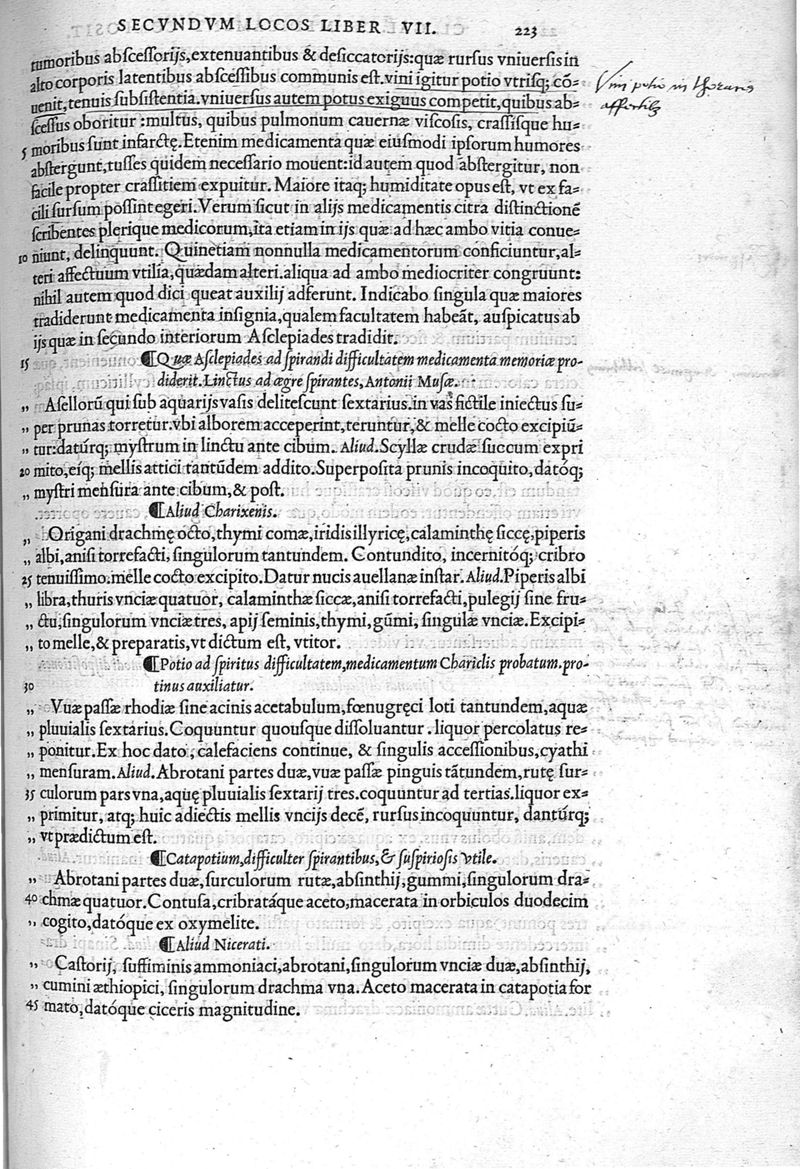 SECVNDVM LOCOS LIBER VII. 223
tumoribus abſceſſorijs,extenuantibus & deſiccatorijs:quæ rurſus vniuerſis in
alto corporis latentibus abſceſſibus communis eſt.vini igitur potio vtriſq; cõ-
uenit,tenuis ſubſiſtentia.vniuerſus autem potus exiguus competit,quibus ab-
ſceſſus oboritur:multus, quibus pulmonum cauernæ viſcoſis, craſſiſque hu-
5 moribus ſunt infarctę.Etenim medicamenta quæ eiuſmodi ipſorum humores
abſtergunt,tuſſes quidem neceſſario mouent:id autem quod abſtergitur, non
facile propter craſſitiem expuitur. Maiore itaq; humiditate opus eſt, vt ex fa-
cili ſurſum poſſint egeri.Verum ſicut in alijs medicamentis citra diſtinctionẽ
ſcribentes plerique medicorum,ita etiam in ijs quæ ad hæc ambo vitia conue-
10 niunt, delinquunt. Quinetiam nonnulla medicamentorum conficiuntur,al-
teri affectuum vtilia,quædam alteri.aliqua ad ambo mediocriter congruunt:
nihil autem quod dici queat auxilij adferunt. Indicabo ſingula quæ maiores
tradiderunt medicamenta inſignia,qualem facultatem habeãt, auſpicatus ab
ijs quæ in ſecundo interiorum Aſclepiades tradidit.
15 ¶Quæ Aſclepiades ad ſpirandi difficultatem medicamenta memoriæ pro-
diderit. Linctus ad ægre ſpirantes, Antonii Muſæ.
„ Aſellorũ qui ſub aquarijs vaſis deliteſcunt ſextarius.in vas fictile iniectus ſu-
„ per prunas torretur.vbi alborem acceperint,teruntur,& melle cocto excipiũ-
„ tur:datúrq; myſtrum in linctu ante cibum. Aliud.Scyllæ crudæ ſuccum expri
20 mito,eíq; mellis attici tantũdem addito.Superpoſita prunis incoquito,datóq;
„ myſtri menſura ante cibum,& poſt.
¶Aliud Charixenis.
„ Origani drachmę octo,thymi comæ,iridis illyricę,calaminthę ſiccę,piperis
„ albi,aniſi torrefacti,ſingulorum tantundem. Contundito, incernitóq; cribro
25 tenuiſſimo.melle cocto excipito.Datur nucis auellanæ inſtar. Aliud.Piperis albi
„ libra,thuris vnciæ quatuor, calaminthæ ſiccæ,aniſi torrefacti,pulegij ſine fru-
„ ctu,ſingulorum vnciæ tres, apij ſeminis,thymi,gũmi, ſingulæ vnciæ. Excipi-
„ to melle,& præparatis,vt dictum eſt, vtitor.
¶Potio ad ſpiritus difficultatem,medicamentum Chariclis probatum.pro-
30 tinus auxiliatur.
„ Vuæ paſſæ rhodiæ ſine acinis acetabulum, fœnugręci loti tantundem,aquæ
„ pluuialis ſextarius. Coquuntur quouſque diſſoluantur. liquor percolatus re-
„ ponitur.Ex hoc dato, calefaciens continue, & ſingulis acceſſionibus,cyathi
„ menſuram. Aliud. Abrotani partes duæ,vuæ paſſæ pinguis tãtundem,rutę ſur-
35 culorum pars vna,aquę pluuialis ſextarij tres.coquuntur ad tertias.liquor ex-
„ primitur, atq; huic adiectis mellis vncijs decẽ, rurſus incoquuntur, dantúrq;
„ vt prædictum eſt.
¶Catapotium,difficulter ſpirantibus,& ſuſpirioſis vtile.
„ Abrotani partes duæ,ſurculorum rutæ,abſinthij,gummi,ſingulorum dra-
40 chmæ quatuor. Contuſa,cribratáque aceto,macerata in orbiculos duodecim
„ cogito,datóque ex oxymelite.
¶Aliud Nicerati.
„ Caſtorij, ſuffiminis ammoniaci,abrotani,ſingulorum vnciæ duæ,abſinthij,
„ cumini æthiopici, ſingulorum drachma vna. Aceto macerata in catapotia for
45 mato,datóque ciceris magnitudine.
Vini potio in thoracis
affectib